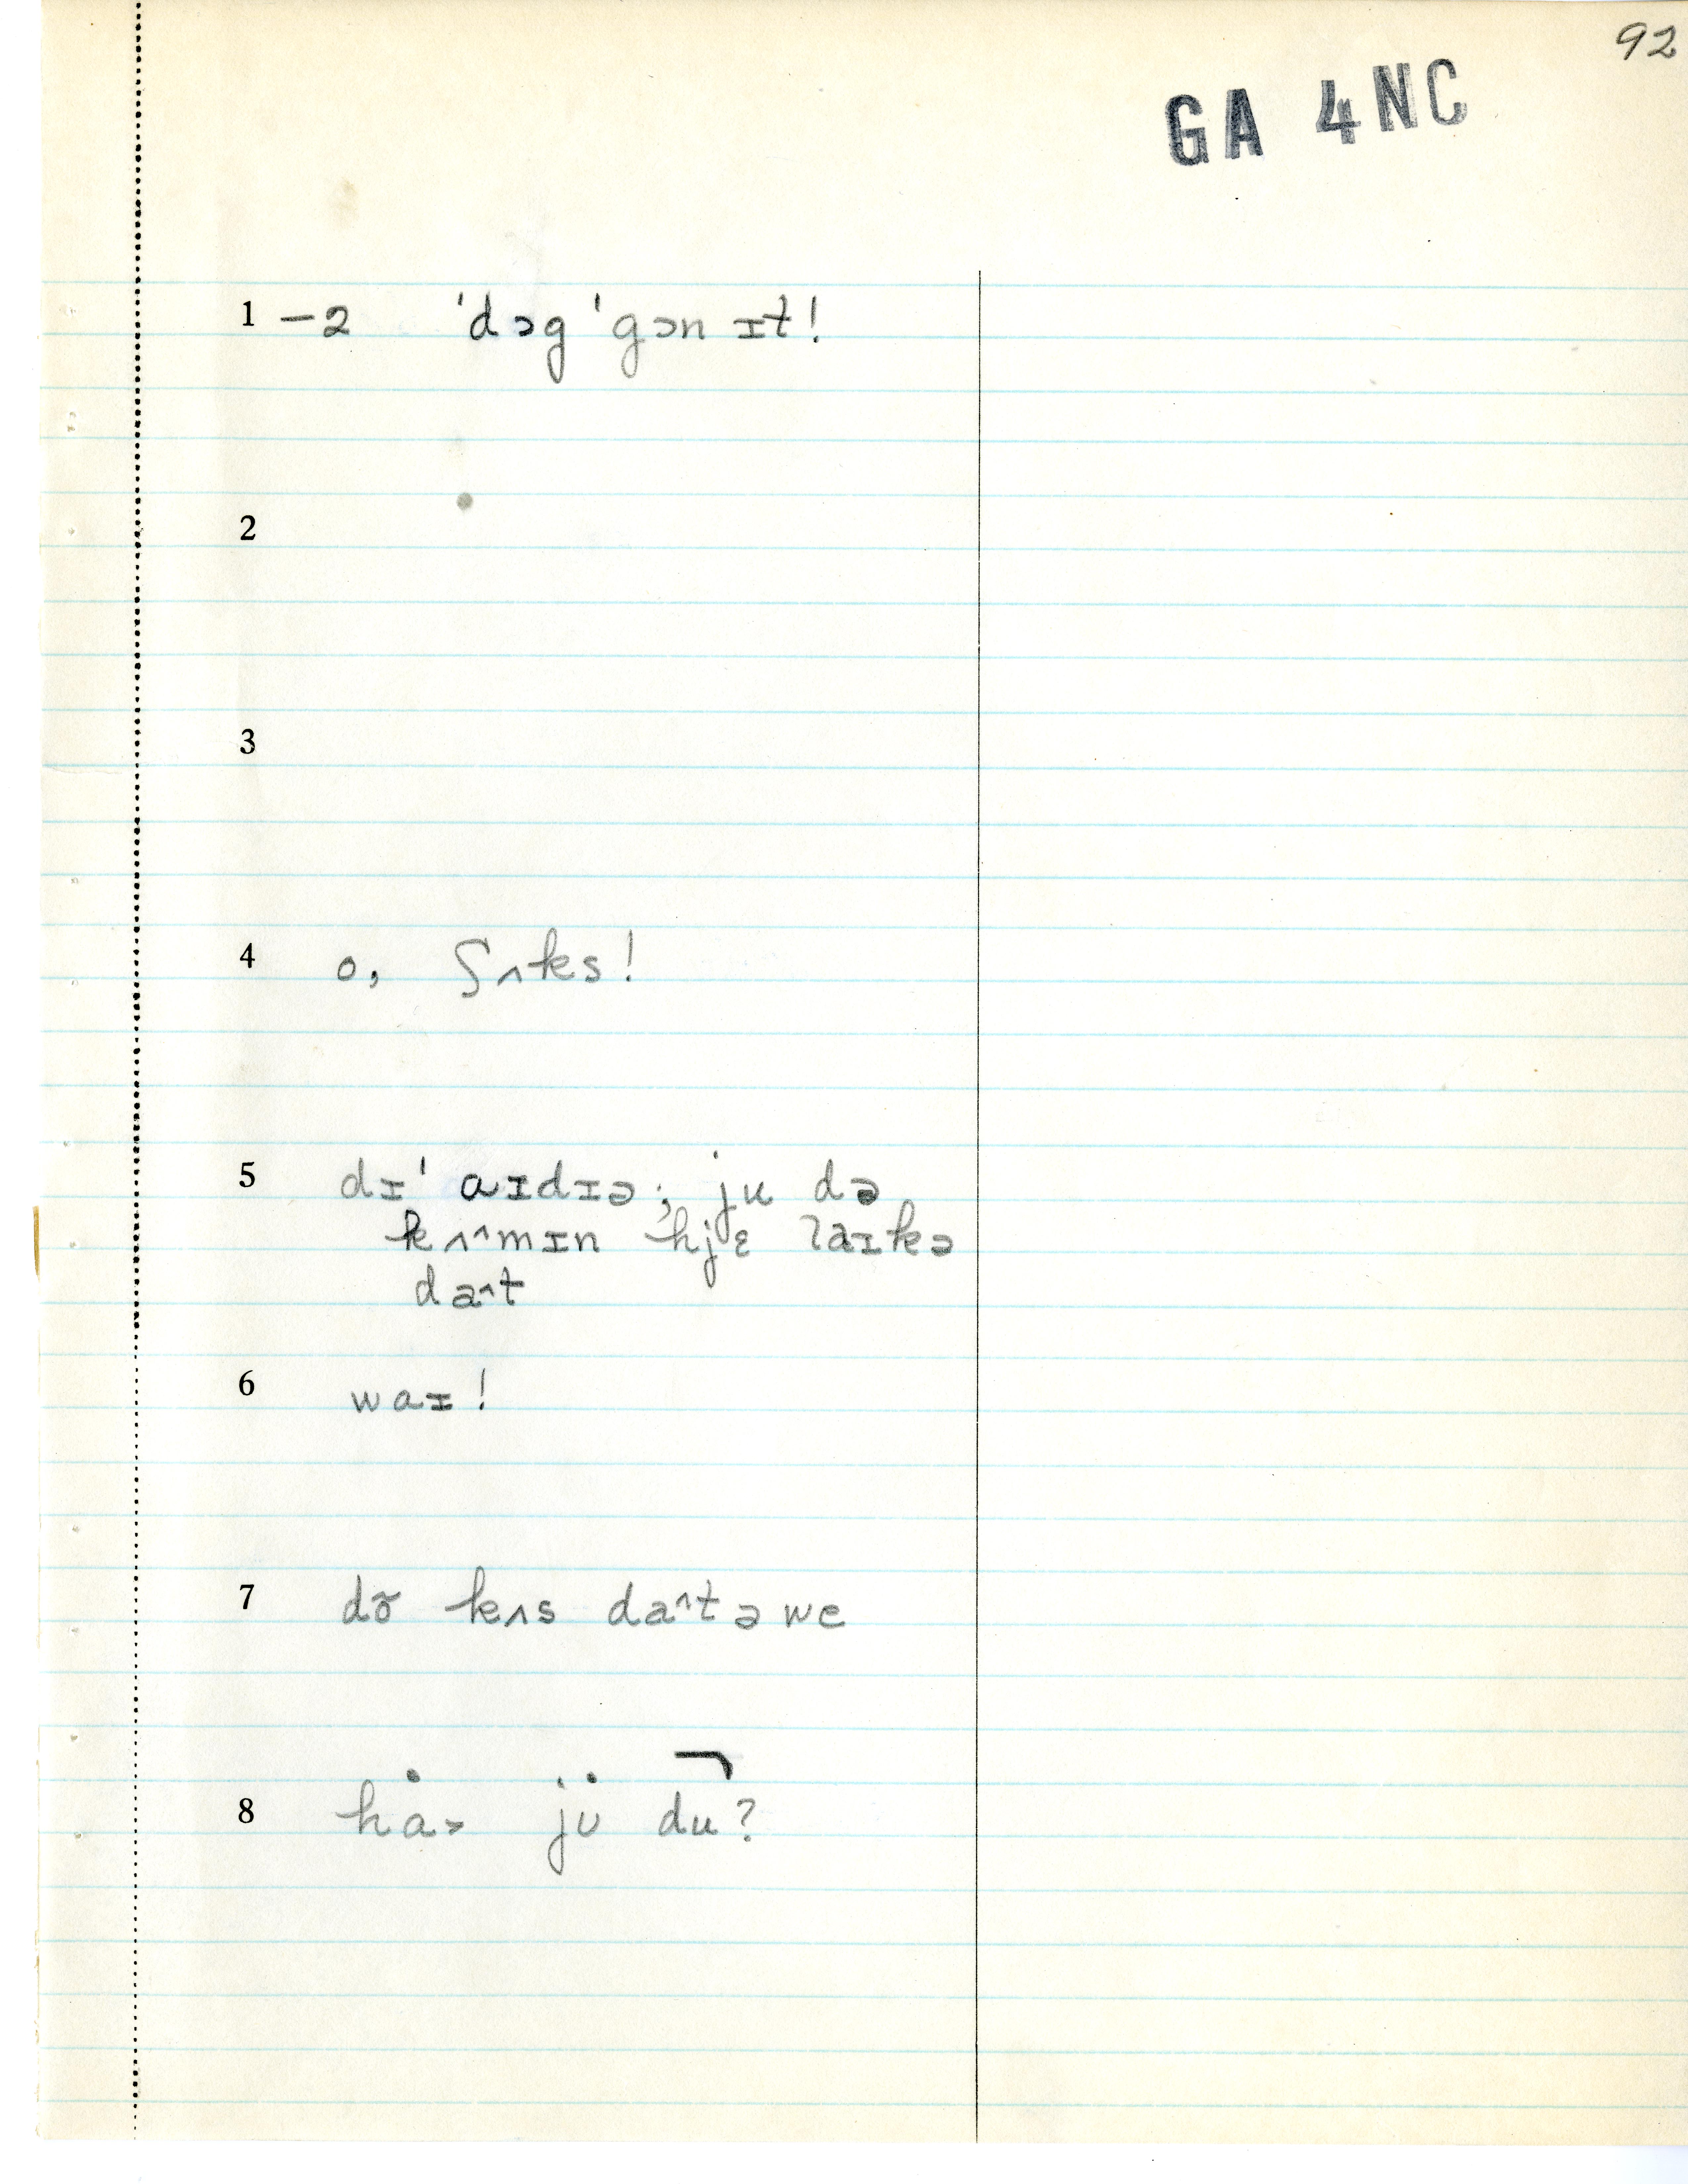 92
GA 4NC
1 –2 ˈdɔg ˈgɔn ɪt!
2
3
4 o, ʃʌks!
5 dɪˈ aɪdɪə; ju də
kʌ^mɪn hjɛ laɪkə
da^t
6 waɪ!
7 dõ kʌs da^t ə we
8 hȧ> jʊ̇ du?